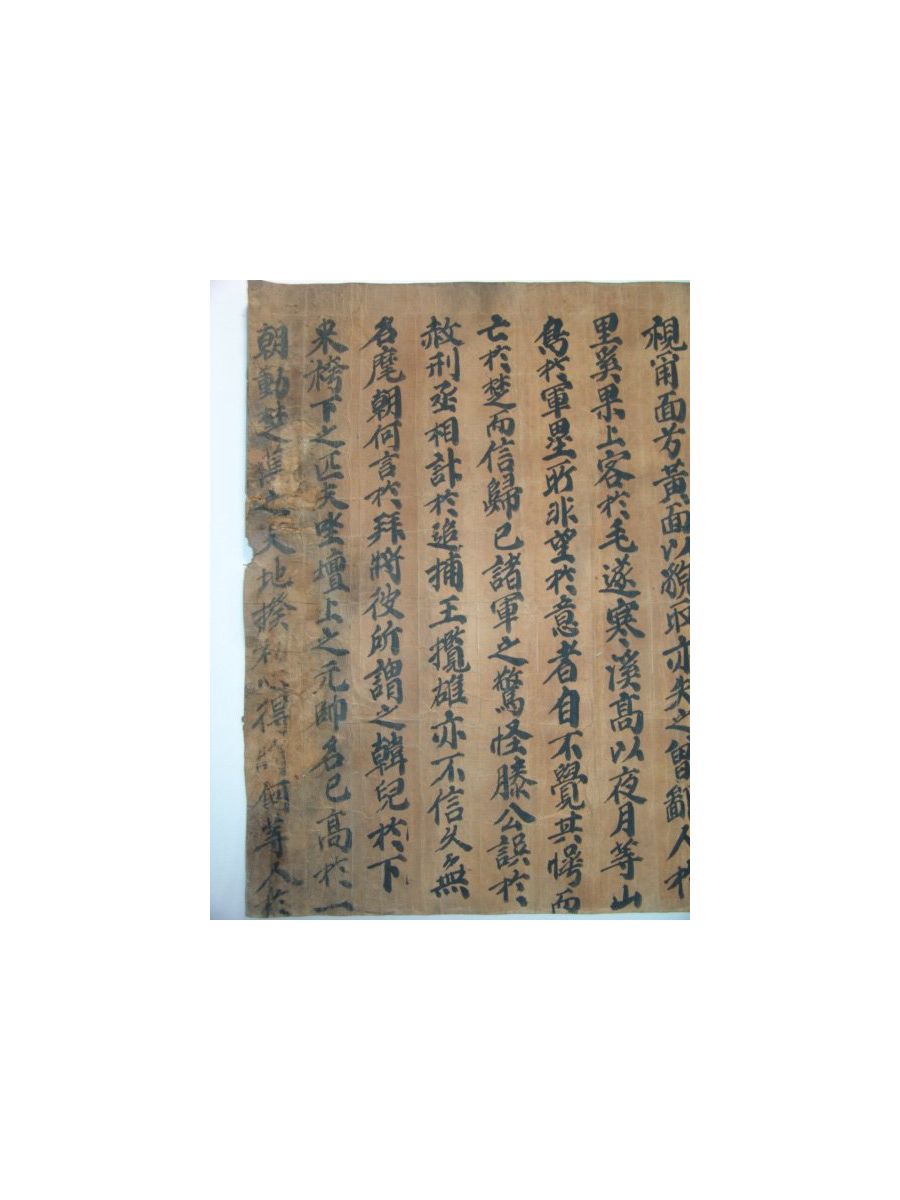 視甯面方黃面以貌取亦失之曾鄙人於
里奚果上客於毛遂寒溪高以夜月等山
鳥於軍壘所非望於意者自不覺其愕而
亡於楚而信歸已諸軍之驚怪滕公誤於
赦刑丞相計於追捕王攬雄亦不信久無
名麾朝何言於拜將彼所謂之韓兒於下
來袴下之匹夫坐壇上之元帥名已高於一
朝動楚之天地揆初心得何等人於